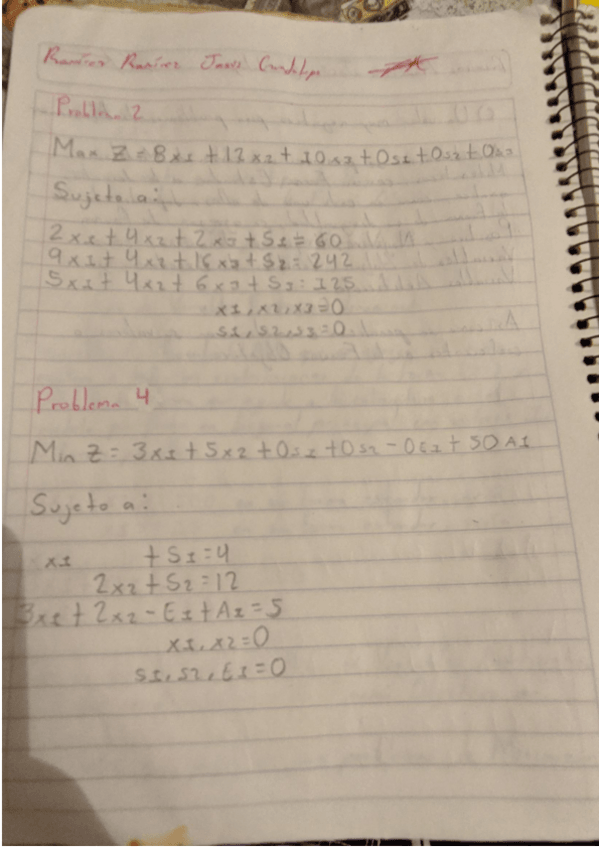 Ramírez Ramírez Jesús
Problema 2
Max Z = 8x1 + 12x2 + 10x3 + 0s1 + 0s2 + 0s3
Sujeto a:
2x1 + 4x2 + 2x3 + S1 = 60
9x1 + 4x2 + 16x3 + S2 = 242
5x1 + 4x2 + 6x3 + S3 = 125
x1, x2, x3 = 0
s1, s2, s3 = 0
Problema 4
Min Z = 3x1 + 5x2 + 0s1 + 0s2 - 0E1 + 50A1
Sujeto a:
x1 + S1 = 4
2x2 + S2 = 12
3x1 + 2x2 - E1 + A1 = 5
x1, x2 = 0
s1, s2, E1 = 0